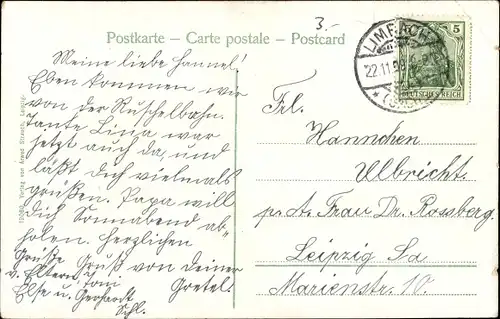 3.-
Postkarte – Carte postale – Postcard
Meine liebe Hannel!
Eben kommen wir
von der Ruschelbahn.
Tante Lina war
jetzt auch da, und
läßt dich vielmals
grüßen. Papa will
dich Sonnabend ab-
holen. Herzlichen
Gruß von deiner
Gretel.
Grüße
v. Eltern, Toni
Else u. Gerhardt
LIMBACH
22.11.08
* (SACHSEN)
5
DEUTSCHES REICH
Frl.
Hannchen
Ulbricht.
p. A. Frau Dr. Rossberg.
Leipzig Sa
Marienstr. 10.
Verlag von Arwed Strauch, Leipzig.